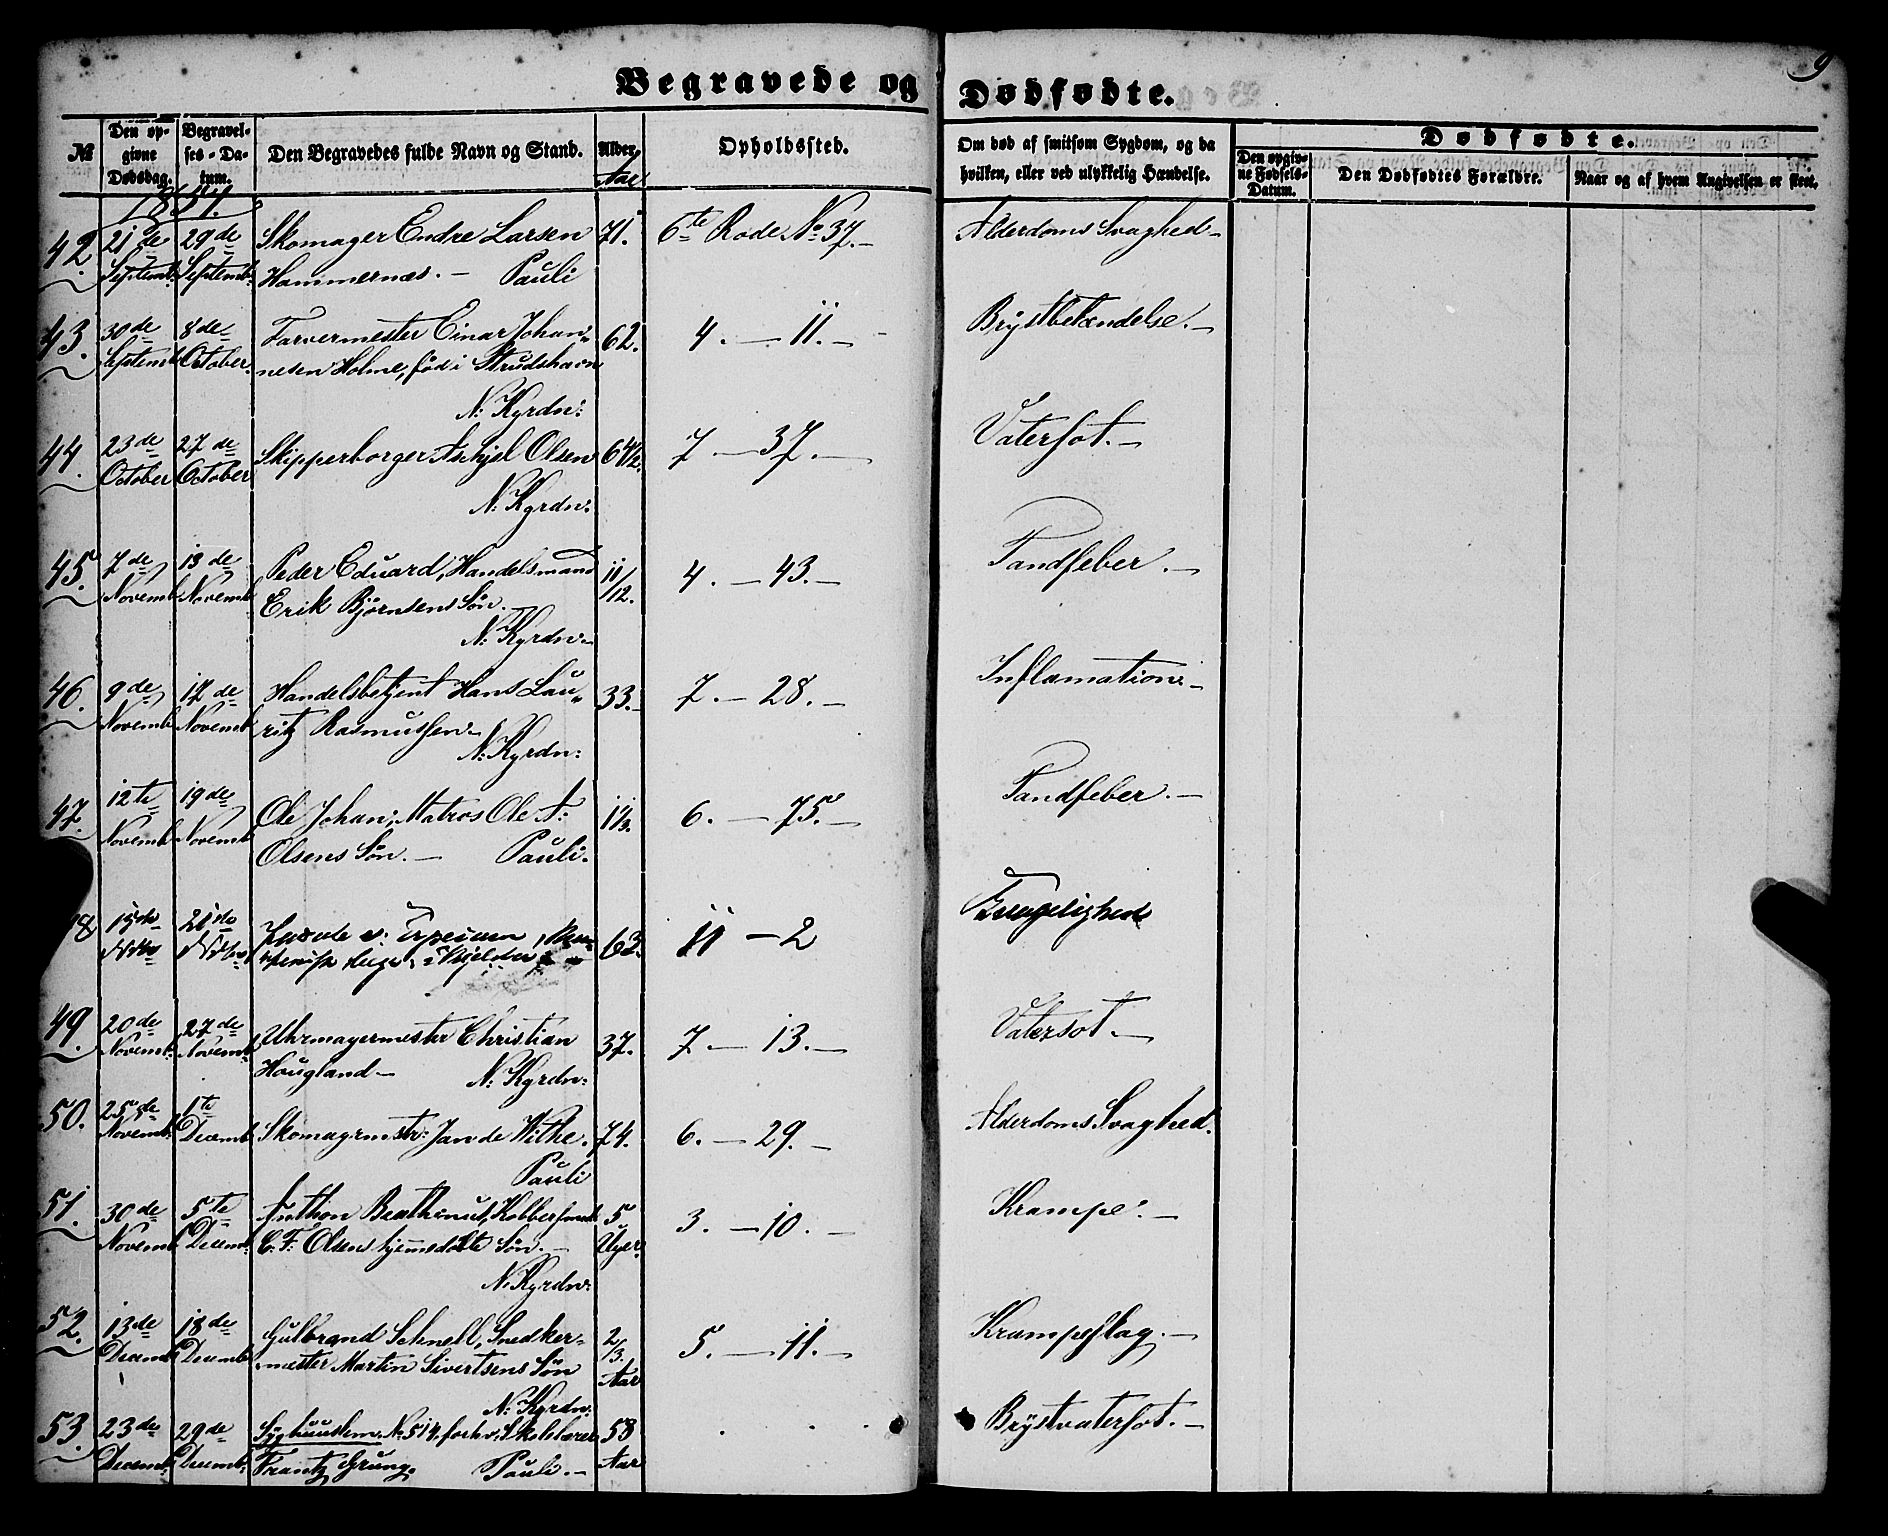 9
Begravede og Dødfødte.
№
Den opgivne Dødsdag.
Begravelses-Datum.
Den Begravedes fulde Navn og Stand.
Alder.
Aar
Opholdssted.
Om død af smitsom Sygdom, og da hvilken, eller ved ulykkelig Hændelse.
Dødfødte.
Den opgivne Fødsels-Datum.
Den Dødfødtes Forældre.
Naar og af hvem Angivelsen er skeet.
42. 21de 29de Skomager Endre Larsen 71. 6te Rode No 37. Alderdoms Svaghed
Septemb: Septemb: Hammernæs. Pauli
43. 30de 8de Farvermester Einar Johan- 62. 4. — 11. — Brystbetændelse.
Septemb October. nesen Holme, fød i Strudshavn
N: Kyrdn:
44. 23de 27de Skipperborger Aschjel Olsen 64½. 7 — 37. — Vatersot.
October October
N: Kyrdn:
45. 7de 13de Peder Eduard, Handelsmand 11/12. 4. — 43. — Tandfeber.
Novemb Novemb Erik Bjørnsens Søn.
N: Kyrdn.
46. 9de 17de Handelsbetjent Hans Lau- 33. 7. — 28. — Inflamation
Novemb Novemb ritz Rasmussen
N: Kyrdn:
47. 12te 19de Ole Johan, Matros Ole A: 1⅓. 6. — 75. — Tandfeber.
Novemb Novemb Olsens Søn. — Pauli.
48 15de 21de 63. 11 — 2
49. 20de 27de Uhrmagermester Christian 37. 7 — 13. — Vatersot.
Novemb: Novemb: Hougland — N: Kyrdn:
50. 25de 1te
Novemb: Decemb Skomagermstr: Jan de Withe. 74. 6. — 29. — Alderdoms Svaghed.
Pauli
51. 30de 5te Anthon Kobbersmed 5 3. — 10. — Krampe.
Novemb Decemb: C. F. Olsens hjemmedøbte Søn. — Uger
N: Kyrdn:
52. 13de 18de Gulbrand Schnell, Snedker- 2/3. 5. — 11. — Krampeslag.
Decemb Decemb mester Martin Sivertsens Søn Aar
N: Kyrdn:
53. 23de 29de N 514, forhv: 58 Brystvatersot.
Decemb: Decemb: Frantz Grung. Pauli. — Aar